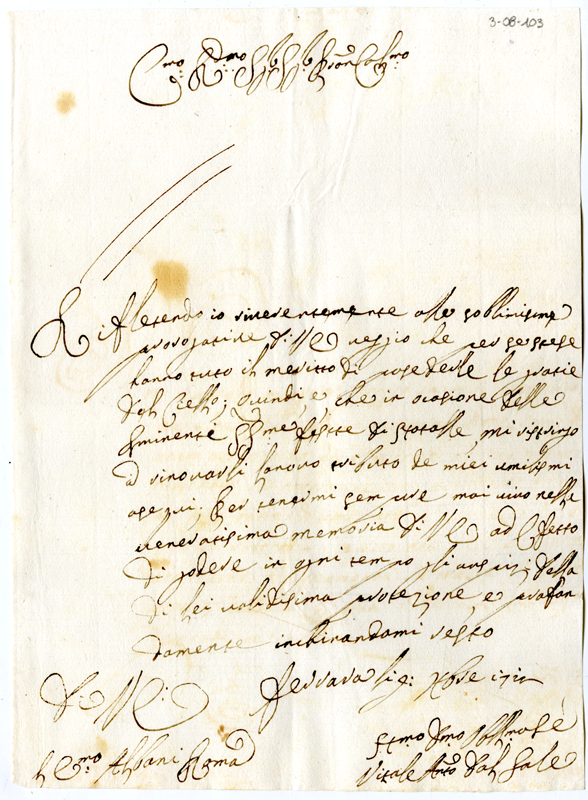 3-08-103
Emo: Rdmo: Sig Sig Pron Colmo
Riflettendo io riverentemente alle soblimisime
prorogatine di V E veggio che per se stese
hanno tuto il meritto di posederle le gratie
del Ciello; quindi è che in ocasione delle
Eminente SSme feste di Natalle mi ristringo
a rinovarli l'anovo tributo de miei umilismi
osequi; per tenermi sempre mai vivo nella
veneratisima memoria di V E ad Efetto
di podere in ogni tempo gli auspizi della
di lei validisima protezione, e profon
damente inchinandomi resto
Di V E: Ferrara li Xbre
E Emo Albani Roma
Vitale Anto dal Sale